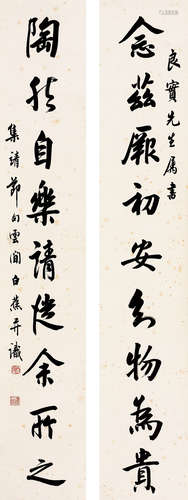 良實先生屬書
念茲厥初安知物為貴
陶然自樂請從余所之
集靖節句雲間白蕉并識